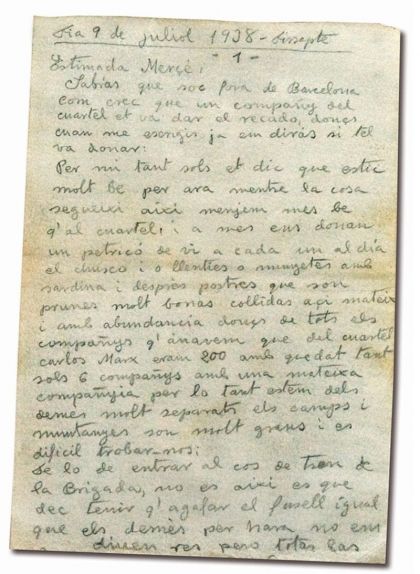 Dia 9 de juliol 1938 - Dissapte
- 1 -
Estimada Mercè;
Sabrás que soc fora de Barcelona
com crec que un company del
cuartel et va dar el recado, doncs
cuan me escrigis ja em dirás si tel
va donar:
Per mi tant sols et dic que estic
molt be per ara mentre la cosa
segueixi aixi menjem mes be
q'al cuartel; i a mes ens donan
un petricó de vi a cada un al dia
el chusco i o llenties o munjetes amb
sardina i despres postres que son
prunes molt bonas collidas açi mateix
i amb abundancia doncs de tots els
companys q'anavem que del cuartel
Carlos Marx eram 200 amb quedat tant
sols 6 companys amb una mateixa
companyia per lo tant estem dels
demes molt separats els camps i
muntanyes son molt grans i es
dificil trobar-nos:
De lo de entrar al cos de Tren de
la Brigada, no es aixi es que
dec tenir q'agafar el fusell igual
que els demès per hara no em
diuen res pero totas las